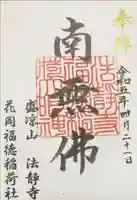 奉拝
令和五年四月二十一日
南無佛
盛涼山 法静寺
花岡福徳稲荷社